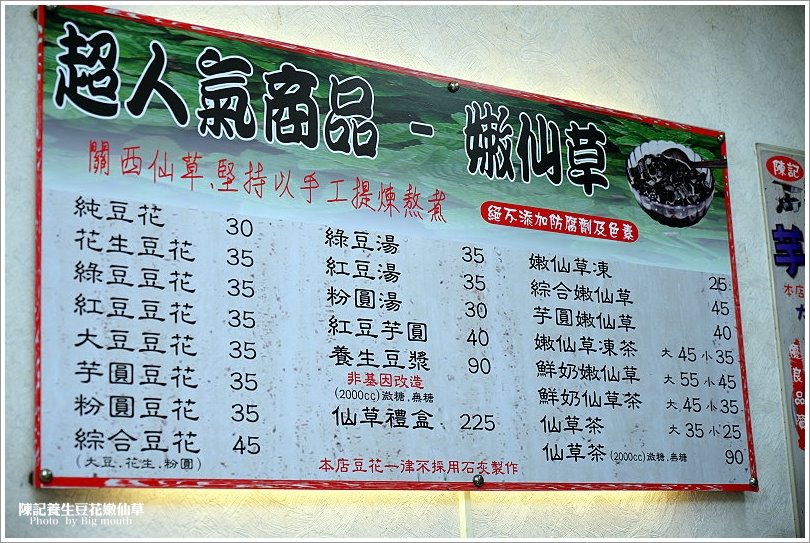 超人氣商品 - 嫩仙草
關西仙草、堅持以手工提煉熬煮
絕不添加防腐劑及色素
純豆花 30
花生豆花 35
綠豆豆花 35
紅豆豆花 35
大豆豆花 35
芋圓豆花 35
粉圓豆花 35
綜合豆花 45
(大豆.花生.粉圓)
綠豆湯 35
紅豆湯 35
粉圓湯 35
紅豆芋圓 40
養生豆漿 90
非基因改造
(2000cc)微糖.無糖
仙草禮盒 225
嫩仙草凍 25
綜合嫩仙草 45
芋圓嫩仙草 40
嫩仙草凍茶 大 45 小 35
鮮奶嫩仙草 大 55 小 45
鮮奶仙草茶 大 45 小 35
仙草茶 大 35 小 25
仙草茶 (2000cc)微糖.無糖 90
本店豆花一律不採用石灰製作
陳記
芋
本店
優良品質
陳記養生豆花嫩仙草
Photo by Big mouth